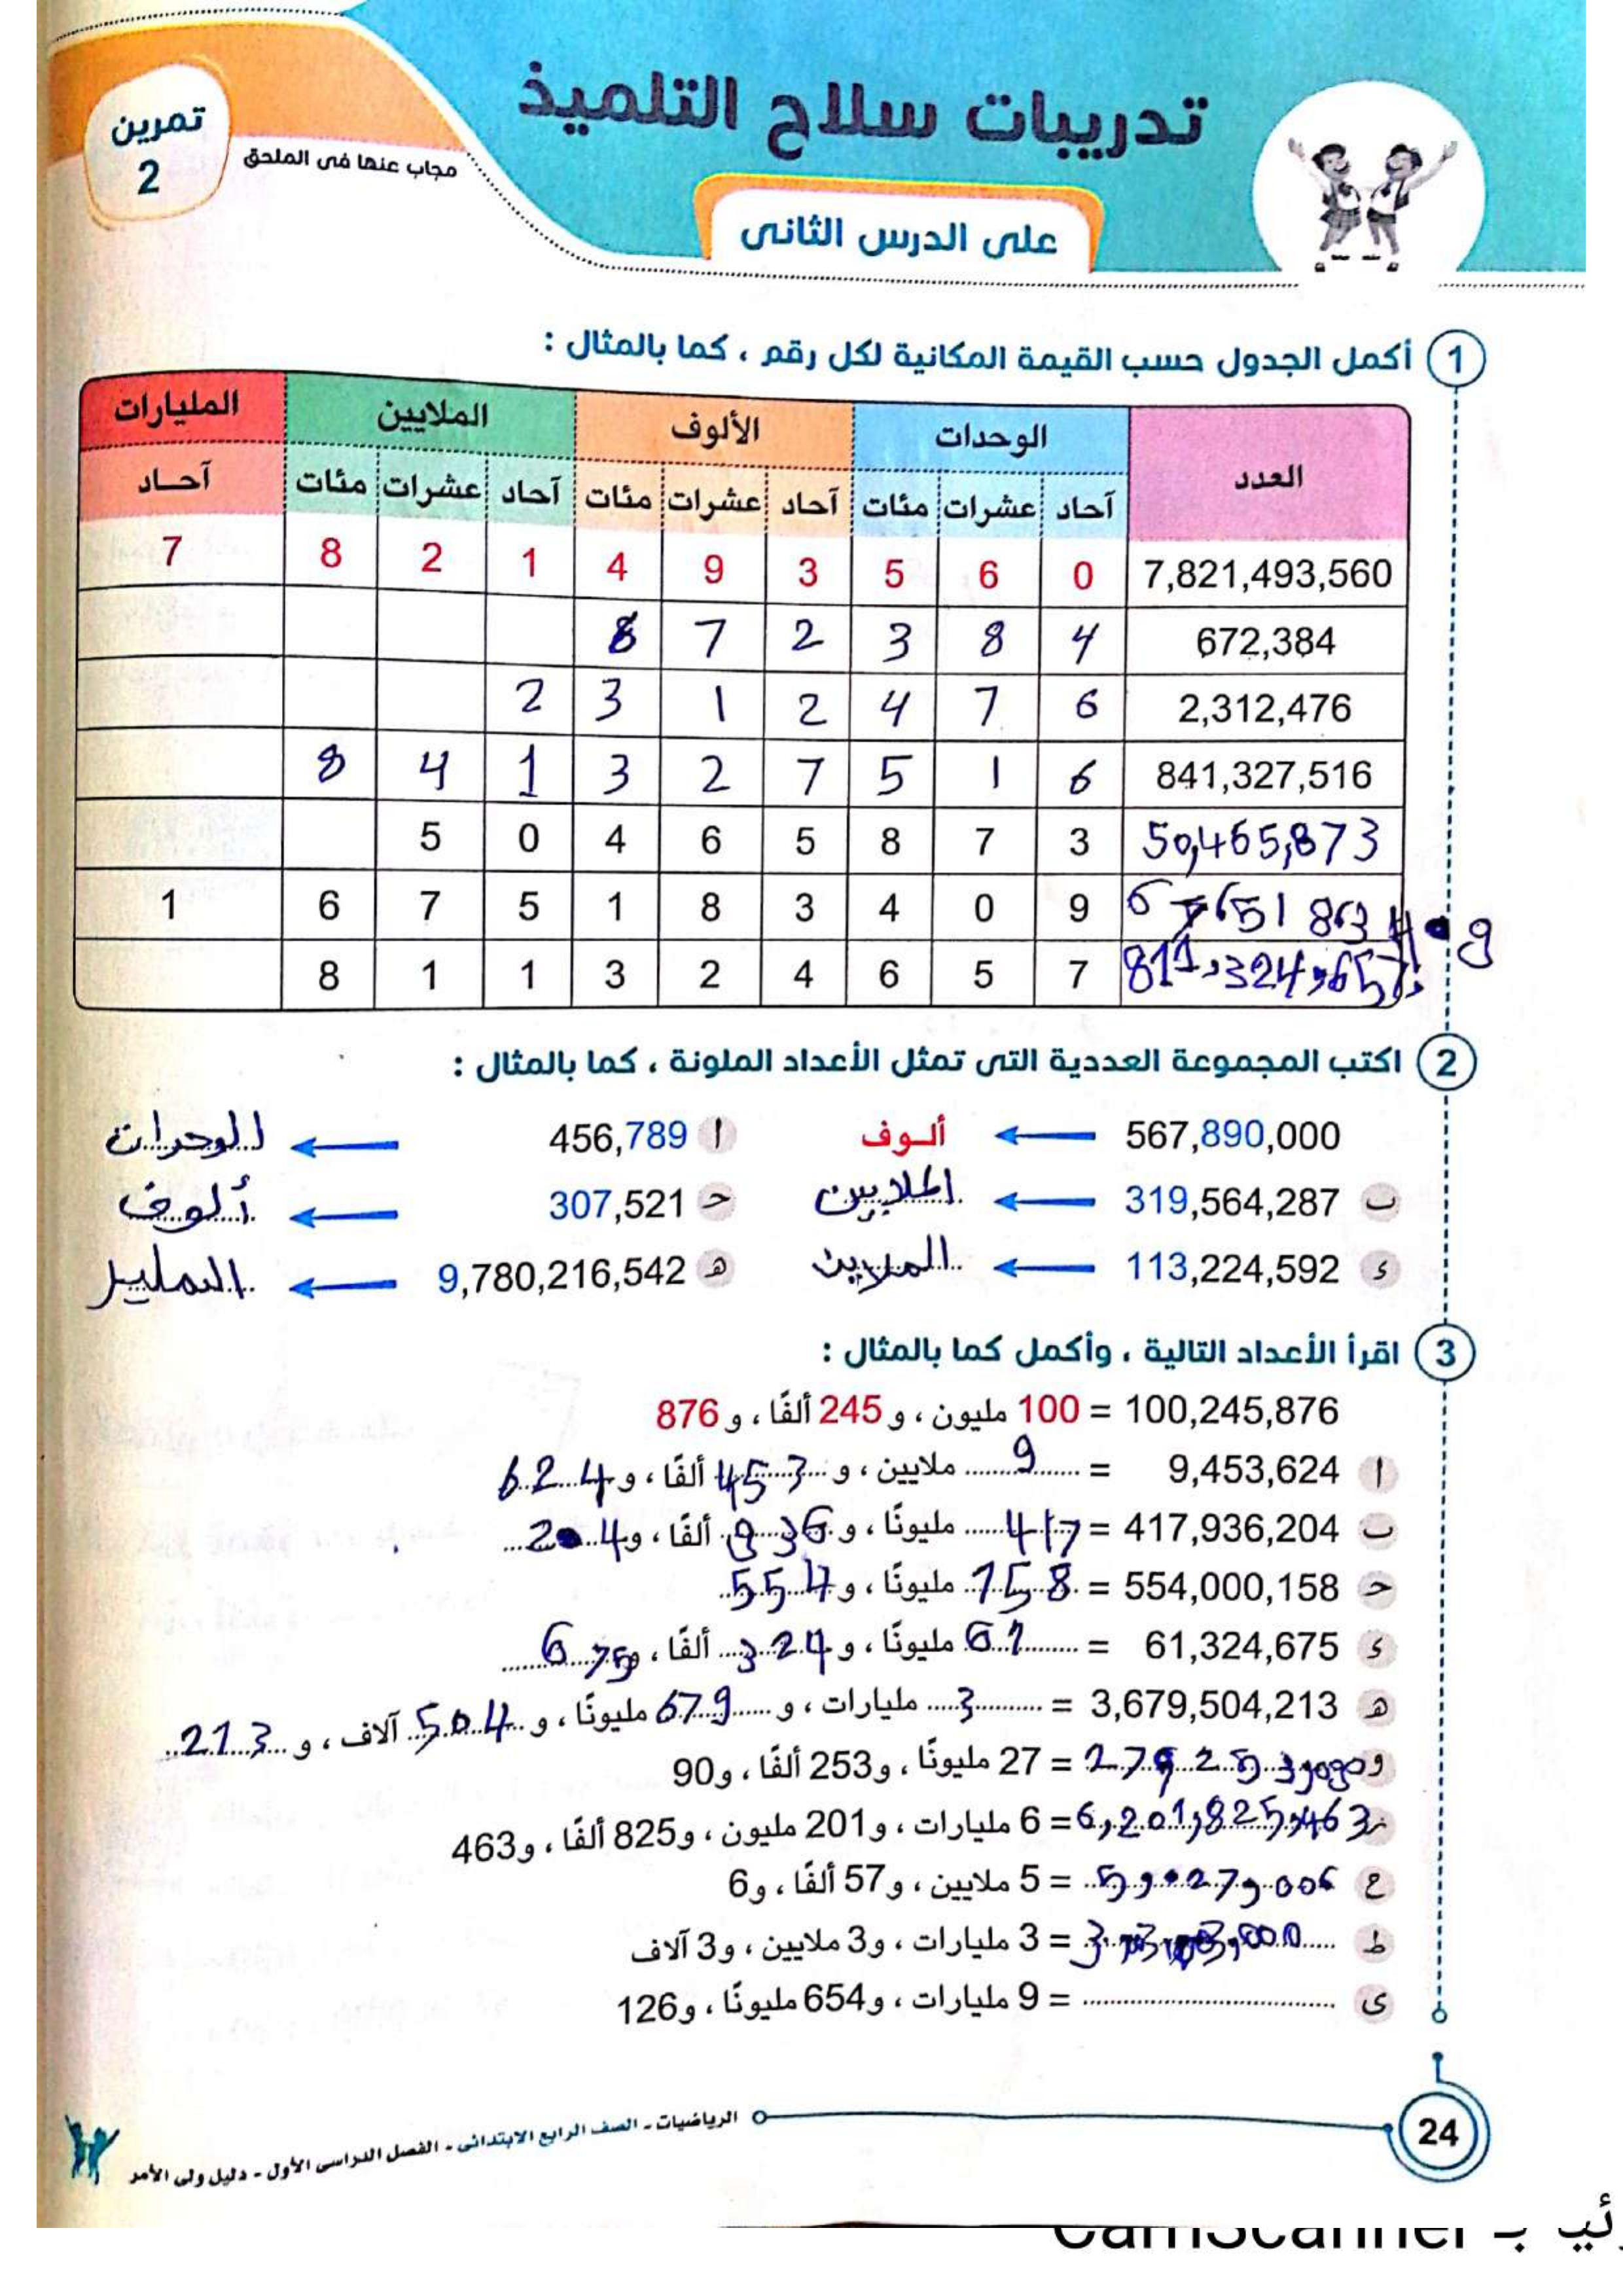 تدريبات سلاح التلميذ
تمرين
2
مجاب عنها فى الملحق
على الدرس الثانى
1 أكمل الجدول حسب القيمة المكانية لكل رقم ، كما بالمثال :
العدد الوحدات الألوف الملايين المليارات
آحاد عشرات مئات آحاد عشرات مئات آحاد عشرات مئات آحاد
7,821,493,560 0 6 5 3 9 4 1 2 8 7
672,384 4 8 3 2 7 6
2,312,476 6 7 4 2 1 3 2
841,327,516 6 1 5 7 2 3 1 4 8
50,465,873 3 7 8 5 6 4 0 5
9 0 4 3 8 1 5 7 6 1
811,324,657 7 5 6 4 2 3 1 1 8
2 اكتب المجموعة العددية التى تمثل الأعداد الملونة ، كما بالمثال :
567,890,000 ← ألوف
ا 456,789 ← الوحدات
ب 319,564,287 ← الملايين
ح 307,521 ← ألوف
ء 113,224,592 ← الملاين
ه 9,780,216,542 ← المليار
3 اقرأ الأعداد التالية ، وأكمل كما بالمثال :
100,245,876 = 100 مليون ، و 245 ألفًا ، و 876
ا 9,453,624 = 9 ملايين ، و 453 ألفًا ، و 624
ب 417,936,204 = 417 مليونًا ، و 936 ألفًا ، و 204
ح 554,000,158 = 158 مليونًا ، و 554
ء 61,324,675 = 61 مليونًا ، و 324 ألفًا ، و 675
ه 3,679,504,213 = 3 مليارات ، و 679 مليونًا ، و 504 آلاف ، و 213
و = 27 مليونًا ، و253 ألفًا ، و90
ز 6,201,825,463 = 6 مليارات ، و201 مليون ، و825 ألفًا ، و463
ح 5,027,006 = 5 ملايين ، و57 ألفًا ، و6
ط = 3 مليارات ، و3 ملايين ، و3 آلاف
ى = 9 مليارات ، و654 مليونًا ، و126
24
الرياضيات - الصف الرابع الابتدائى - الفصل الدراسى الأول - دليل ولى الأمر
CamScanner